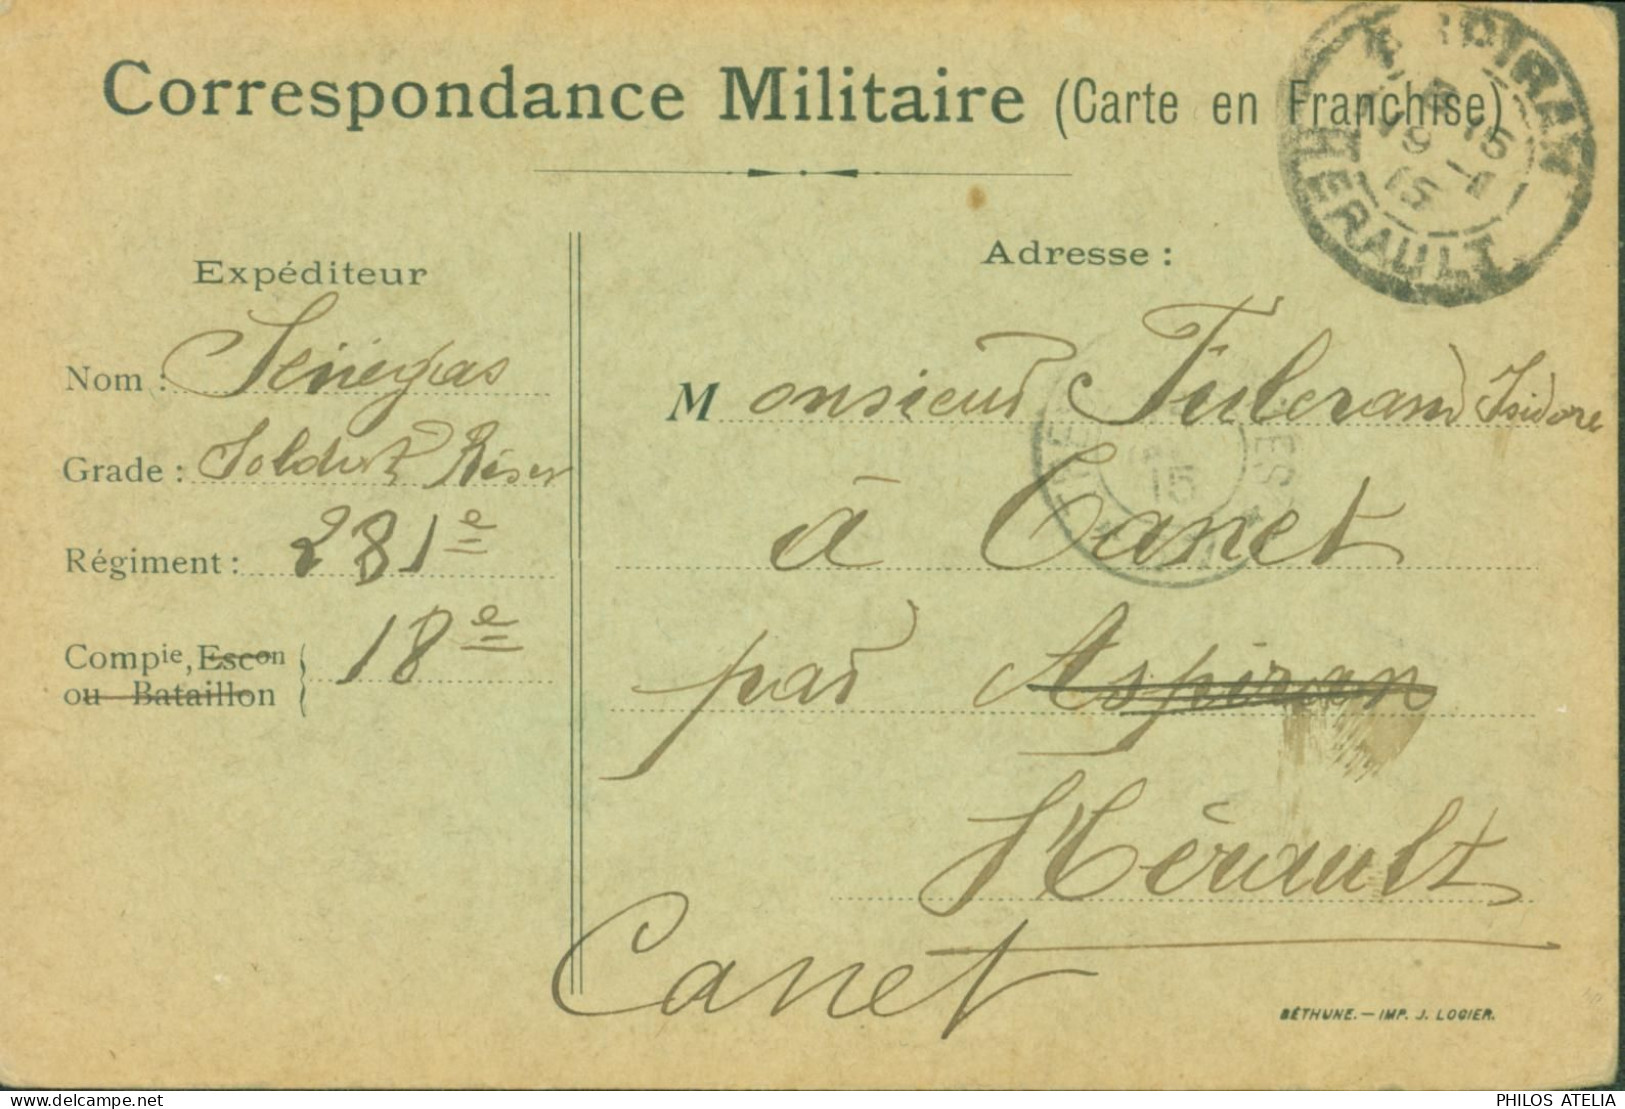 Correspondance Militaire (Carte en Franchise)
HERAULT
19 -1
15
Expéditeur
Nom : Sénégas
Grade : Soldat Réser
Régiment : 281e
Compie, Escon
ou Bataillon
18e
Adresse :
Monsieur Fulcrand Isidore
à Canet
15
par Aspiran
Hérault
Canet
BÉTHUNE. — IMP. J. LOGIER.
PHILOS ATELIA